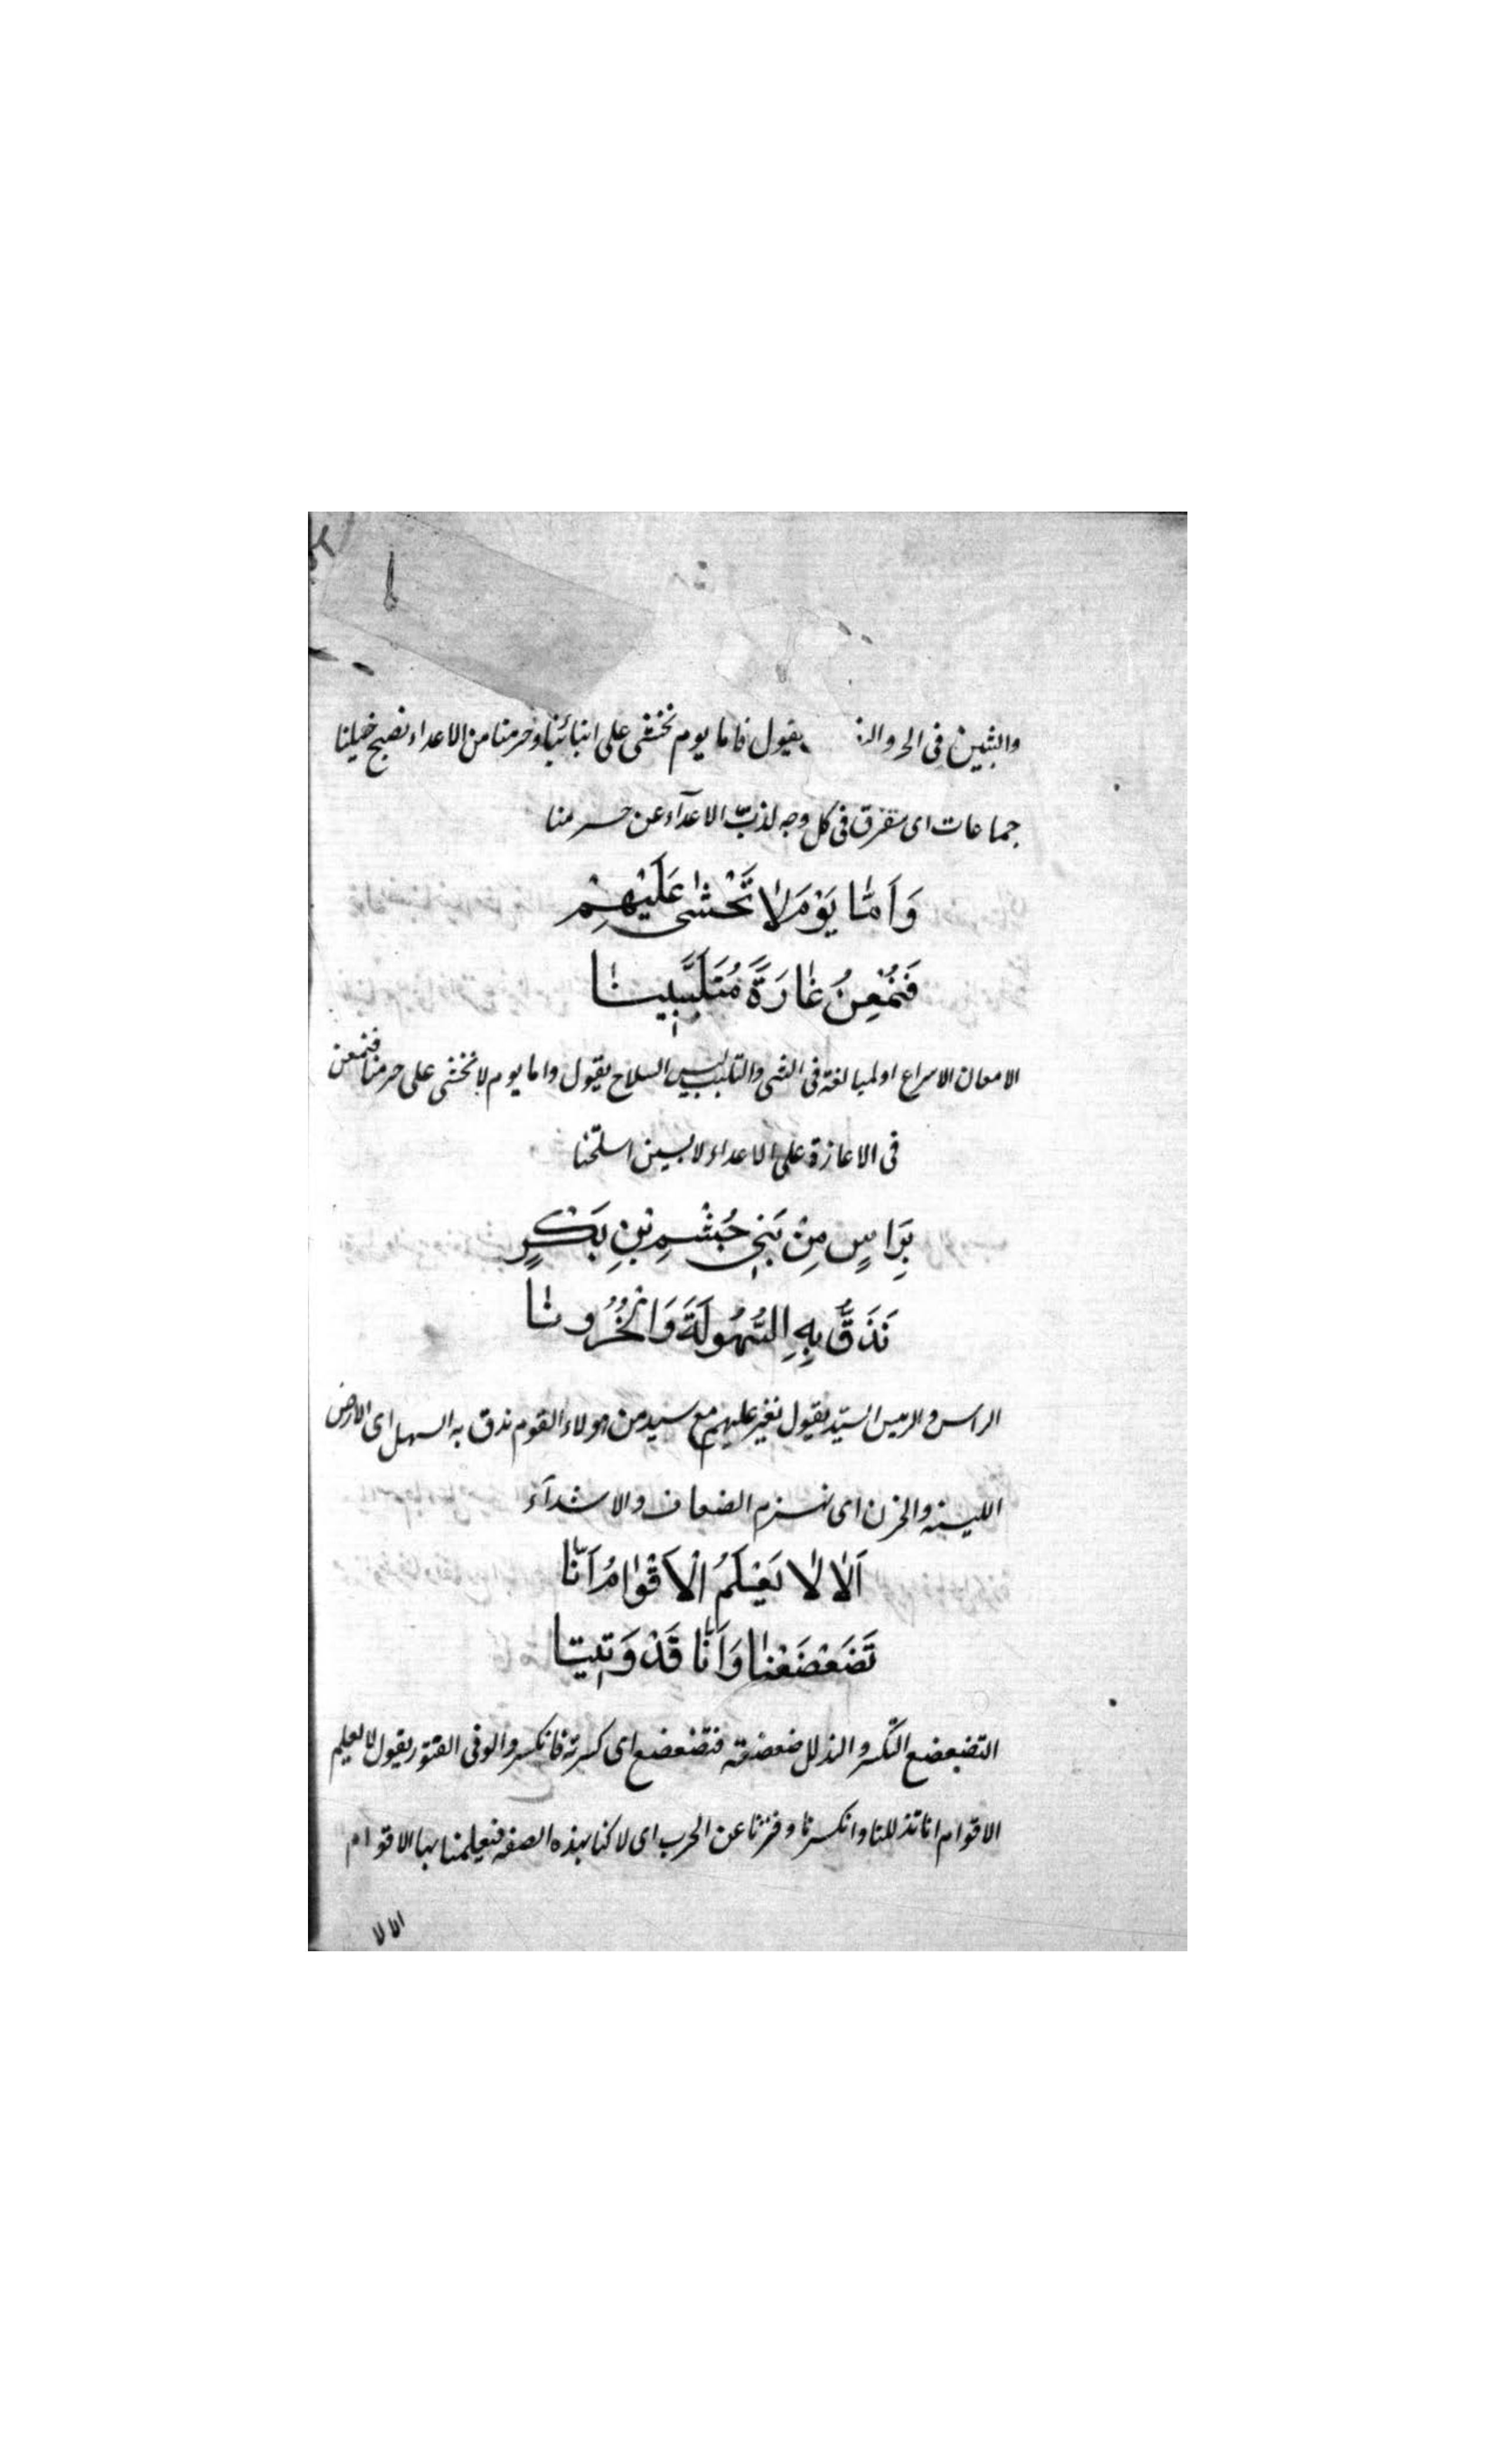 والثبين فى الحر والد يقول فاما يوم نخشى على ابنائنا وحرمنا من الاعداء تصبح خيلنا
جماعات اى تتفرق فى كل وجه لذبّ الاعدآء عن حرمنا
وَاَمَّا يَوْمَ لَا نَخْشٰى عَلَيْهِمْ
فَنُمْعِنُ غٰارَةً مُتَلَبِّبِينٰا
الامعان الاسراع اولمبالغة فى الشى والتلبب لبس السلاح يقول واما يوم لا نخشى على حرمنا فنمعن
فى الاغارة على الاعداء لابسين اسلحتنا
بِرَاسٍ مِنْ بَنِى جُشَمِ بْنِ بَكْرٍ
نَدُقُّ بِهِ السُّهُولَةَ وَالْحُزُونٰا
الراس والرييس السيّد يقول نغير عليهم مع سيد من هولاء القوم ندق به السهل اى الارض
اللينه والحزن اى نهزم الضعاف والاشدآء
اَلاٰ لاٰ يَعْلَمُ الْاَقْوٰامُ اَنّٰا
تَضَعْضَعْنٰا وَاَنّٰا قَدْ وَنِيٖنٰا
التضعضع التكسر والتذلل ضعضعته فتضعضع اى كسرته فانكسر والونى الفتور يقول لا يعلم
الاقوام انا تذللنا وانكسرنا وفترنا عن الحرب اى لا كنا بهذه الصفه فيعلمنا بها الاقوام
الا لا